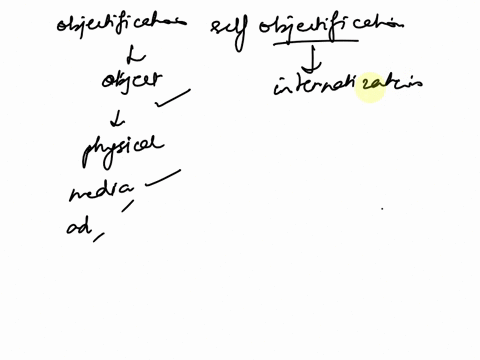 objectification self objectification
object internalization
physical
media
ad